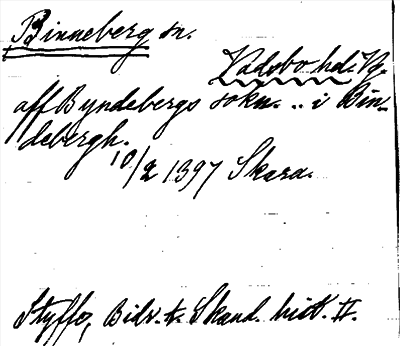 Binneberg sn.
Vadsbo hd. Vg.
aff Byndebergs sokn .. i Bin-
debergh.
10/2 1397 Skara.
Styffe, Bidr. t. Skand. hist. II.